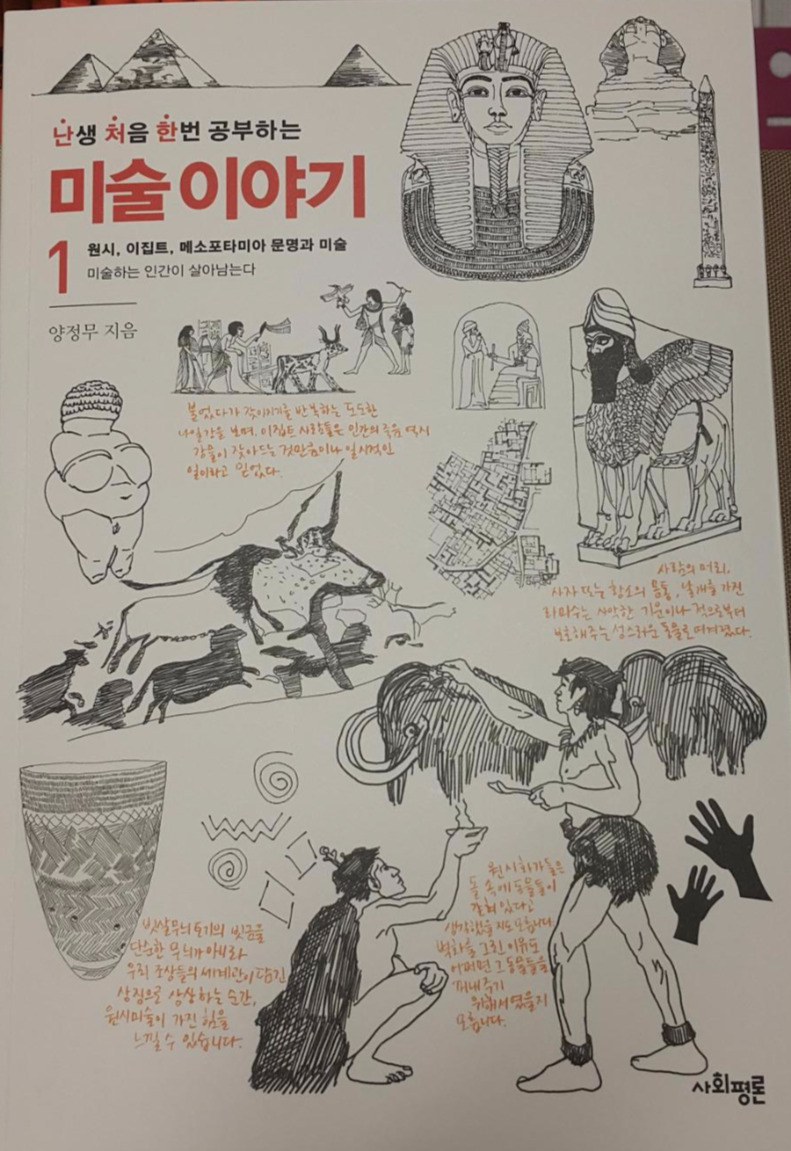 난생 처음 한번 공부하는
미술 이야기
1
원시, 이집트, 메소포타미아 문명과 미술
미술하는 인간이 살아남는다
양정무 지음
불었다가 작아지기를 반복하는 도도한
나일강을 보며, 이집트 사람들은 인간의 죽음 역시
강물이 잦아드는 것만큼이나 일시적인
일이라고 믿었다.
사람의 머리,
사자 또는 황소의 몸통, 날개를 가진
라마수는 사악한 기운이나 적으로부터
보호해주는 성스러운 동물로 여겨졌다.
원시 화가들은
돌 속에 동물들이
갇혀 있다고
생각했을지도 모릅니다.
벽화를 그린 이유도
어쩌면 그 동물들을
꺼내주기
위해서였을지
모릅니다.
빗살무늬 토기의 빗금을
단순한 무늬가 아니라
우리 조상들의 세계관이 담긴
상징으로 상상하는 순간,
원시미술이 가진 힘을
느낄 수 있습니다.
사회평론